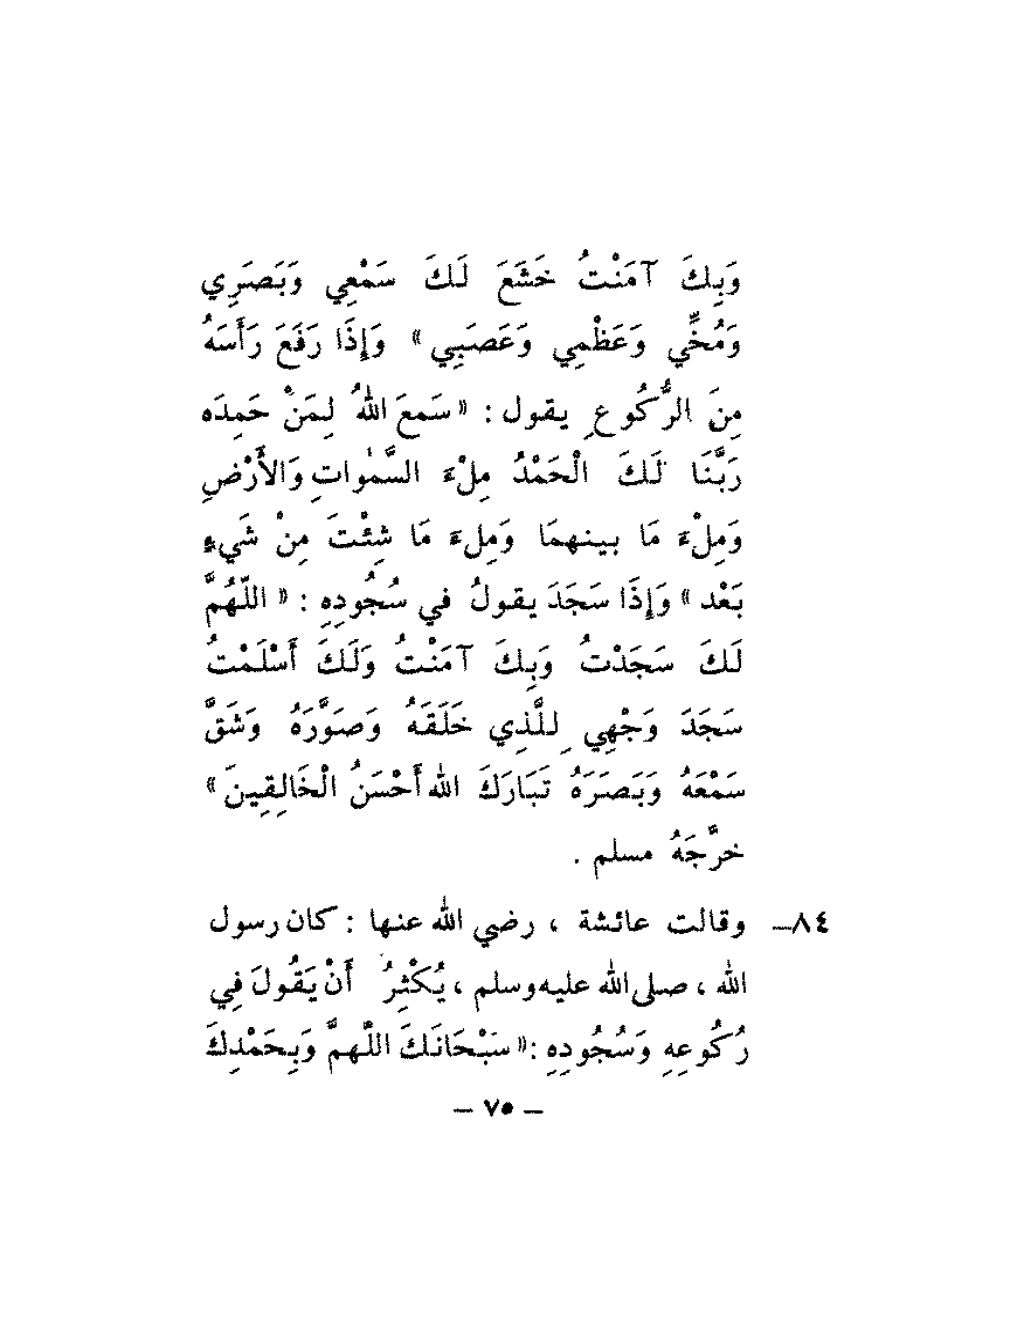 وَبِكَ آمَنْتُ خَشَعَ لَكَ سَمْعِي وَبَصَرِي
وَمُخِّي وَعَظْمِي وَعَصَبِي » وَإِذَا رَفَعَ رَأَسَهُ
مِنَ الرُّكُوعِ يقول : « سَمعَ اللهُ لِمَنْ حَمِدَه
رَبَّنَا لَكَ الْحَمْدُ مِلْءَ السَّمٰواتِ وَالأَرْضِ
وَمِلْءَ مَا بينهمَا وَمِلءَ مَا شِئْتَ مِنْ شَيءٍ
بَعْد » وَإِذَا سَجَدَ يقولُ في سُجُودِهِ : « اللّهُمَّ
لَكَ سَجَدْتُ وَبِكَ آمَنْتُ وَلَكَ أَسْلَمْتُ
سَجَدَ وَجْهِي لِلَّذِي خَلَقَهُ وَصَوَّرَهُ وَشَقَّ
سَمْعَهُ وَبَصَرَهُ تَبَارَكَ الله أَحْسَنُ الْخَالِقِينَ »
خرَّجَهُ مسلم .
٨٤ــ وقالت عائشة ، رضي الله عنها : كان رسول
الله ، صلى الله عليه وسلم ، يُكْثِرُ أَنْ يَقُولَ فِي
رُكُوعِهِ وَسُجُودِهِ : « سَبْحَانَكَ اللَّهمَّ وَبِحَمْدِكَ
– ٧٥ –